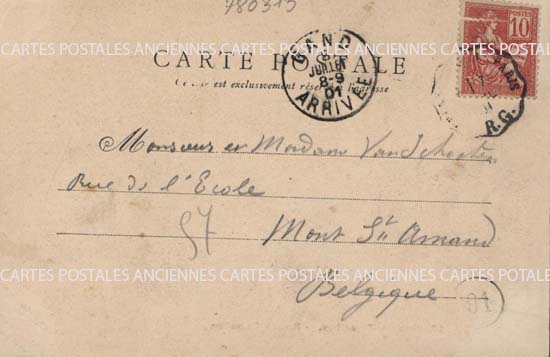 780315
POSTES
10
GAND
JUILLET
8-9
01
ARRIVEE
CARTE POSTALE
est exclusivement réservé
R.G.
CARTES POSTALES ANCIENNES CARTES POSTALES ANCIENNES CARTES POSTALES
Monsieur et Madame Van Schoote
Rue de l'Ecole
57
Mont St Amand
CARTES POSTALES ANCIENNES CARTES POSTALES ANCIENNES CARTES POSTALES
Belgique